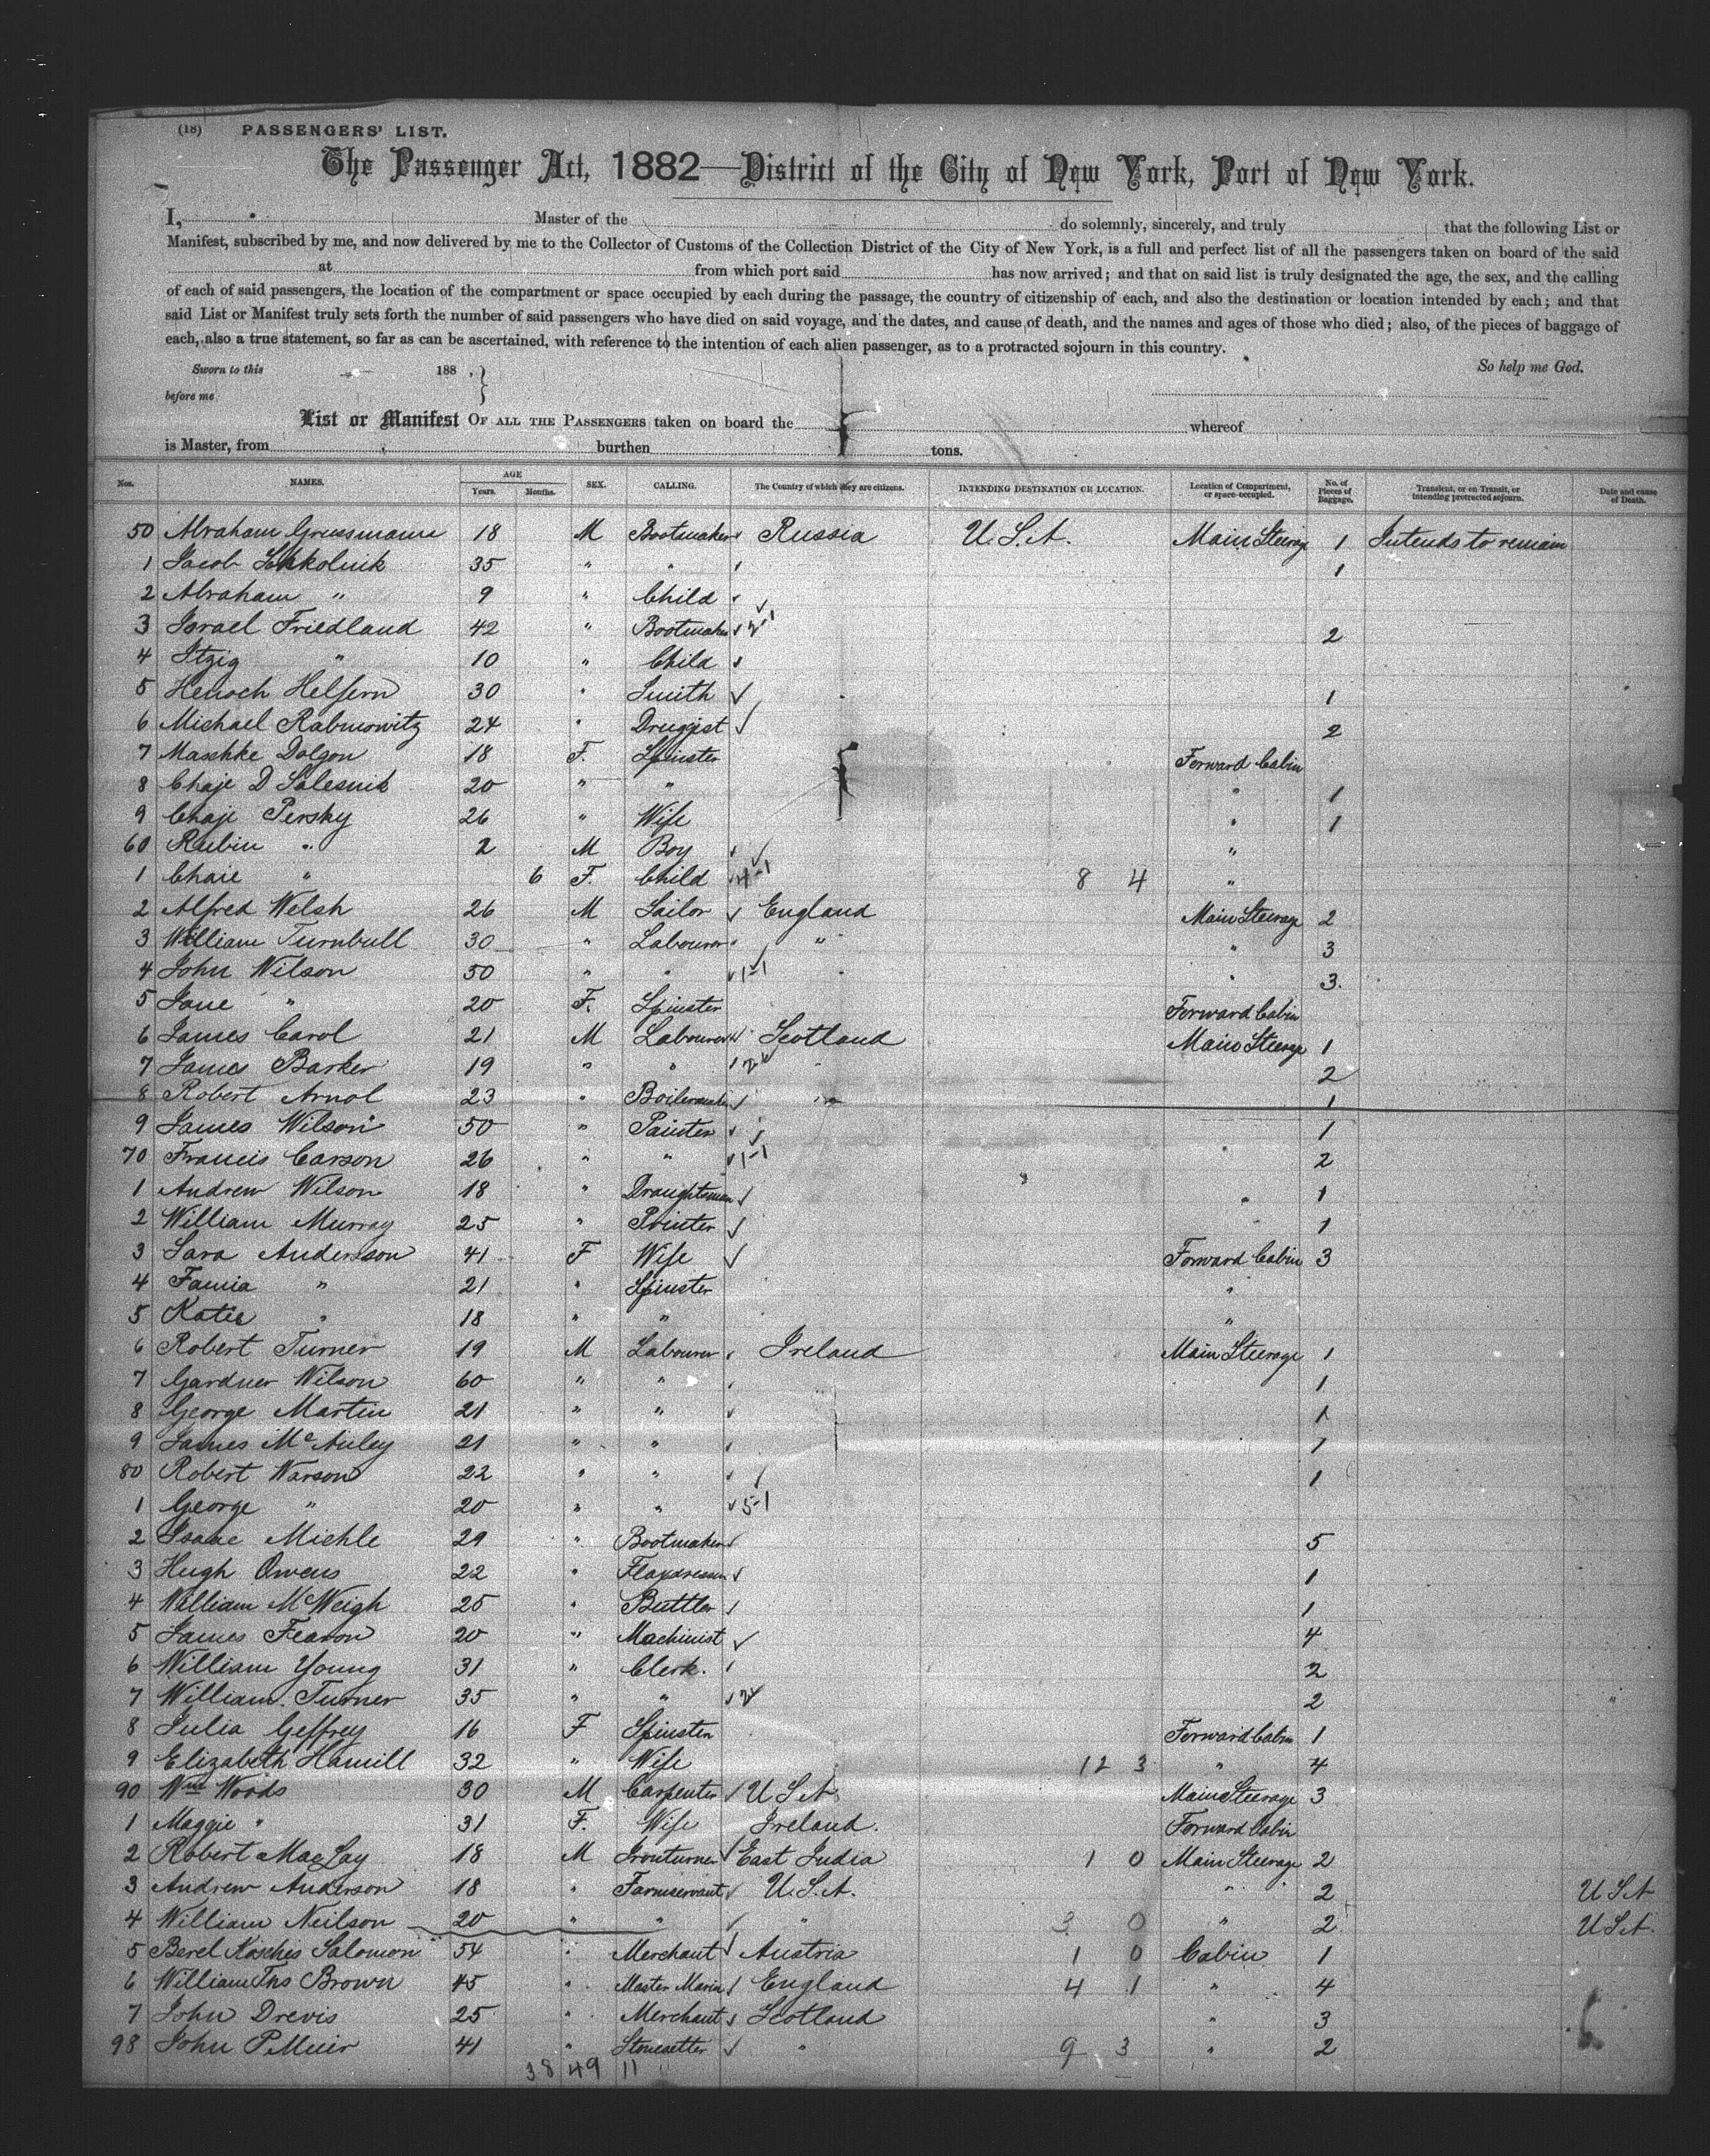 (18) PASSENGERS' LIST.
The Passenger Act, 1882—District of the City of New York, Port of New York.
I, Master of the do solemnly, sincerely, and truly that the following List or
Manifest, subscribed by me, and now delivered by me to the Collector of Customs of the Collection District of the City of New York, is a full and perfect list of all the passengers taken on board of the said
at from which port said has now arrived; and that on said list is truly designated the age, the sex, and the calling
of each of said passengers, the location of the compartment or space occupied by each during the passage, the country of citizenship of each, and also the destination or location intended by each; and that
said List or Manifest truly sets forth the number of said passengers who have died on said voyage, and the dates, and cause of death, and the names and ages of those who died; also, of the pieces of baggage of
each, also a true statement, so far as can be ascertained, with reference to the intention of each alien passenger, as to a protracted sojourn in this country.
Sworn to this 188 , So help me God.
before me
List or Manifest OF ALL THE PASSENGERS taken on board the whereof
is Master, from burthen tons.
Nos. NAMES. AGE Years. Months. SEX. CALLING. The Country of which they are citizens. INTENDING DESTINATION OR LOCATION. Location of Compartment, or space occupied. No. of Pieces of Baggage. Transient, or en Transit, or intending protracted sojourn. Date and cause of Death.
50 Abraham Grussmann 18 M Bootmaker Russia U.S.A. Main Steerage 1 Intends to remain
1 Jacob Schkolnik 35 " " 1
2 Abraham " 9 " Child
3 Israel Friedland 42 " Bootmaker 2-1 2
4 Itzig " 10 " Child
5 Henoch Helfern 30 " Smith 1
6 Michael Rabinowitz 24 " Druggist 2
7 Maschke Dolgon 18 F. Spinster Forward Cabin
8 Chaje D Solesnik 20 " " " 1
9 Chaje Persky 26 " Wife " 1
60 Rubin " 2 M Boy "
1 Chaie " 6 F. Child 4-1 8 4 "
2 Alfred Welsh 26 M Sailor England Main Steerage 2
3 William Turnbull 30 " Labourer " " 3
4 John Wilson 50 " " 1-1 " " 3.
5 Jane " 20 F. Spinster Forward Cabin
6 James Carol 21 M Labourer Scotland Main Steerage 1
7 James Barker 19 " " " 2
8 Robert Arnol 23 " Boilermaker " 1
9 James Wilson 50 " Painter 1
70 Francis Carson 26 " " 1-1 " 2
1 Andrew Wilson 18 " Draughtsman " 1
2 William Murray 25 " Printer " 1
3 Sara Andersson 41 F Wife Forward Cabin 3
4 Famia " 21 " Spinster "
5 Katie " 18 " " "
6 Robert Turner 19 M Labourer Ireland Main Steerage 1
7 Gardner Wilson 60 " " 1
8 George Martin 21 " " 1
9 James McAuley 21 " " 1
80 Robert Warson 22 " " 1
1 George " 20 " " 5-1
2 Isaac Michle 29 " Bootmaker 5
3 Hugh Owens 22 " Flaxdresser 1
4 William McWeigh 25 " Buttler 1
5 James Fearon 20 " Machinist 4
6 William Young 31 " Clerk. 2
7 William Turner 35 " " 2
8 Julia Geffrey 16 F Spinster Forward Cabin 1
9 Elizabeth Hamill 32 " Wife 12 3 " 4
90 Wm Woods 30 M Carpenter U S A. Main Steerage 3
1 Maggie " 31 F. Wife Ireland. Forward Cabin
2 Robert MacLay 18 M Ironturner East India 1 0 Main Steerage 2
3 Andrew Anderson 18 " Farmservant U.S.A. " 2 U S A
4 William Neilson 20 " " " 3 0 " 2 U S A.
5 Berel Kosches Salomon 54 " Merchant Austria 1 0 Cabin 1
6 William Ths Brown 45 " Master Marin England 4 1 " 4
7 John Drevis 25 " Merchant Scotland " 3
98 John P Muir 41 " Stonesetter " 9 3 " 2
38 49 11